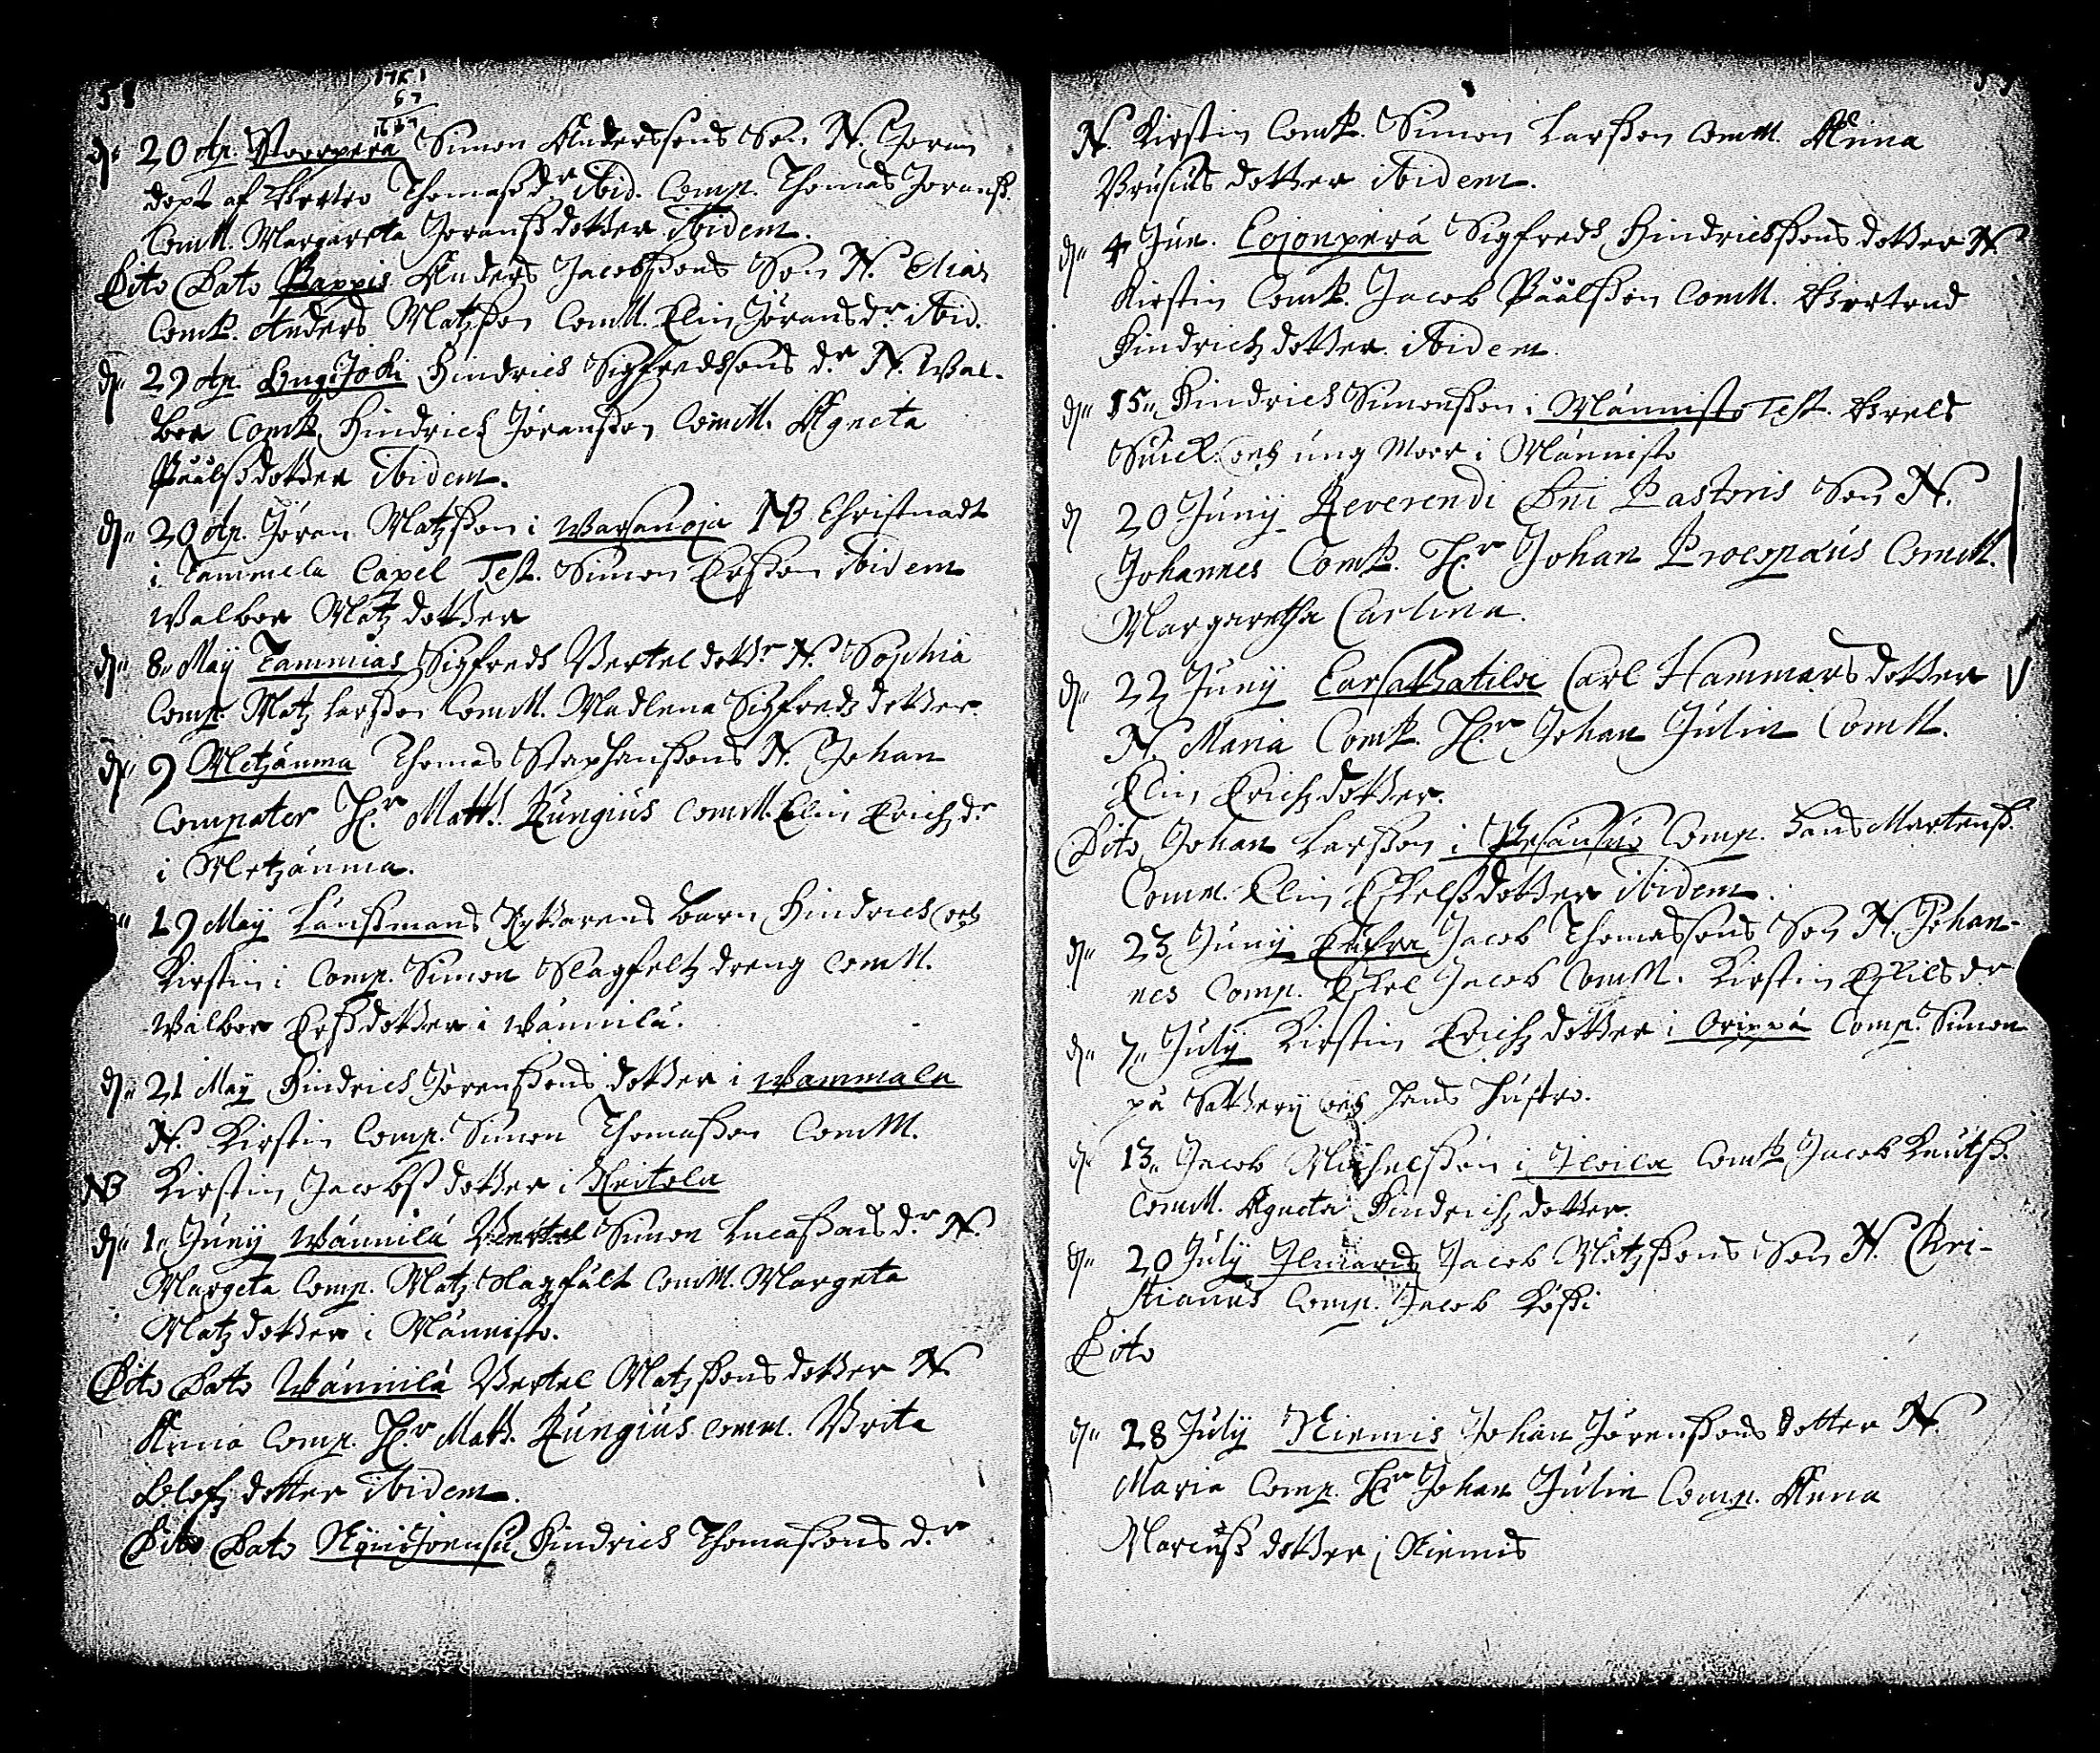 58
1751
67
1684
d. 20 Ap. Woorpera Simon Anderssons Son N. Joran
döpt af Thomaß dr ibid. Comp. Thomas Joranß.
ComM. Margareta Joranßdotter ibidem.
Dito Dato Pappis Anders Jacobßons Son N. Elias
ComP. Anders Matzßon ComM. Elin Jöransdr. ibid.
d. 29 Ap. Hindrich Sigfredssons dr. N. Wal-
bor ComP. Hindrich Jöranßon ComM. Agneta
Påålßdotter ibidem.
d. 20 Ap. Jören Matzßon i Warsanoja NB Christnadt
i Tammela Capel Test. Simon Erßon ibidem
Walbor Matzdotter
d. 8. Maij Tammias Sigfreds Berteldottr N. Sophia
Comp. Matz Larßon ComM. Madlena Sigfredzdotter.
d. 9 Metzänma Thomas Staphanßons N. Johan
Compater Hr. Matth. Rungius ComM. Elin Erichzdr
i Metzänma.
19 Maij Länßmans Ryttarens barn Hindrich och
Kirstin i Comp. Simon Slagfeltz dreng ComM.
Walbor Erßdotter i Wännilä.
d. 21 Maij Hindrich Jörenßons dotter i Wammala
N. Kirstin Comp. Simon Thomaßon ComM.
NB Kirstin Jacobßdotter i Heitola
d. 1. Junij Wännilä Bertel Simon Lucaßons dr N.
Margeta Comp. Matz Slagfält ComM. Margeta
Matzdotter i Männistö.
Dito Dato Wännilä Bertel Matzßons dotter N.
Anna Comp. Hr. Matth. Rungius comm. Brita
Olofzdotter ibidem.
Dito Dato Hindrich Thomaßons dr
N. Kirstin ComP. Simon Larßon ComM. Anna
Brusius dotter ibidem.
d. 4 Jun. Cojonperä Sigfreds Hindrichßons dotter N.
Kirstin ComP. Jacob Påålßon ComM. Bertrud
Hindrichzdotter ibidem.
d. 15. Hindrich Simonßon i Männistö Test.
och ung Moor i Männistö
d 20 Junij Reverendi Dni Pastoris Son N.
Johannes ComP. Hr Johan Procopæus ComM.
Margaretha Carlina.
d. 22 Junij Carsattatila Carl Hammars dotter
N. Maria ComP. Hr Johan Julin ComM.
Elin Erichzdotter.
Dito Johan Larßon i Comp. Hans Mårtenß.
Comm. Elin Eskelßdotter ibidem.
d. 23 Junij Jacob Thomassons Son N. Johan-
nes Comp. Eskel Jacob ComM. Kirstin Eskilsdr.
d. 7. Julij Kirstin Erichzdotter i Orippä Comp. Simon
på Sätterij och hans hustro.
d. 13. Jacob Michelßon i Jloila ComP. Jacob Knutß.
ComM. Agneta Hindrichzdotter.
d. 20 Julij Jlmaris Jacob Matzßons Son N. Chri-
stianus Comp. Jacob Kåski
Dito
d. 28 Julij Niemis Johan Jörenßons dotter N.
Maria Comp. Hr Johan Julin Comp. Anna
Marcußdotter i Niemis